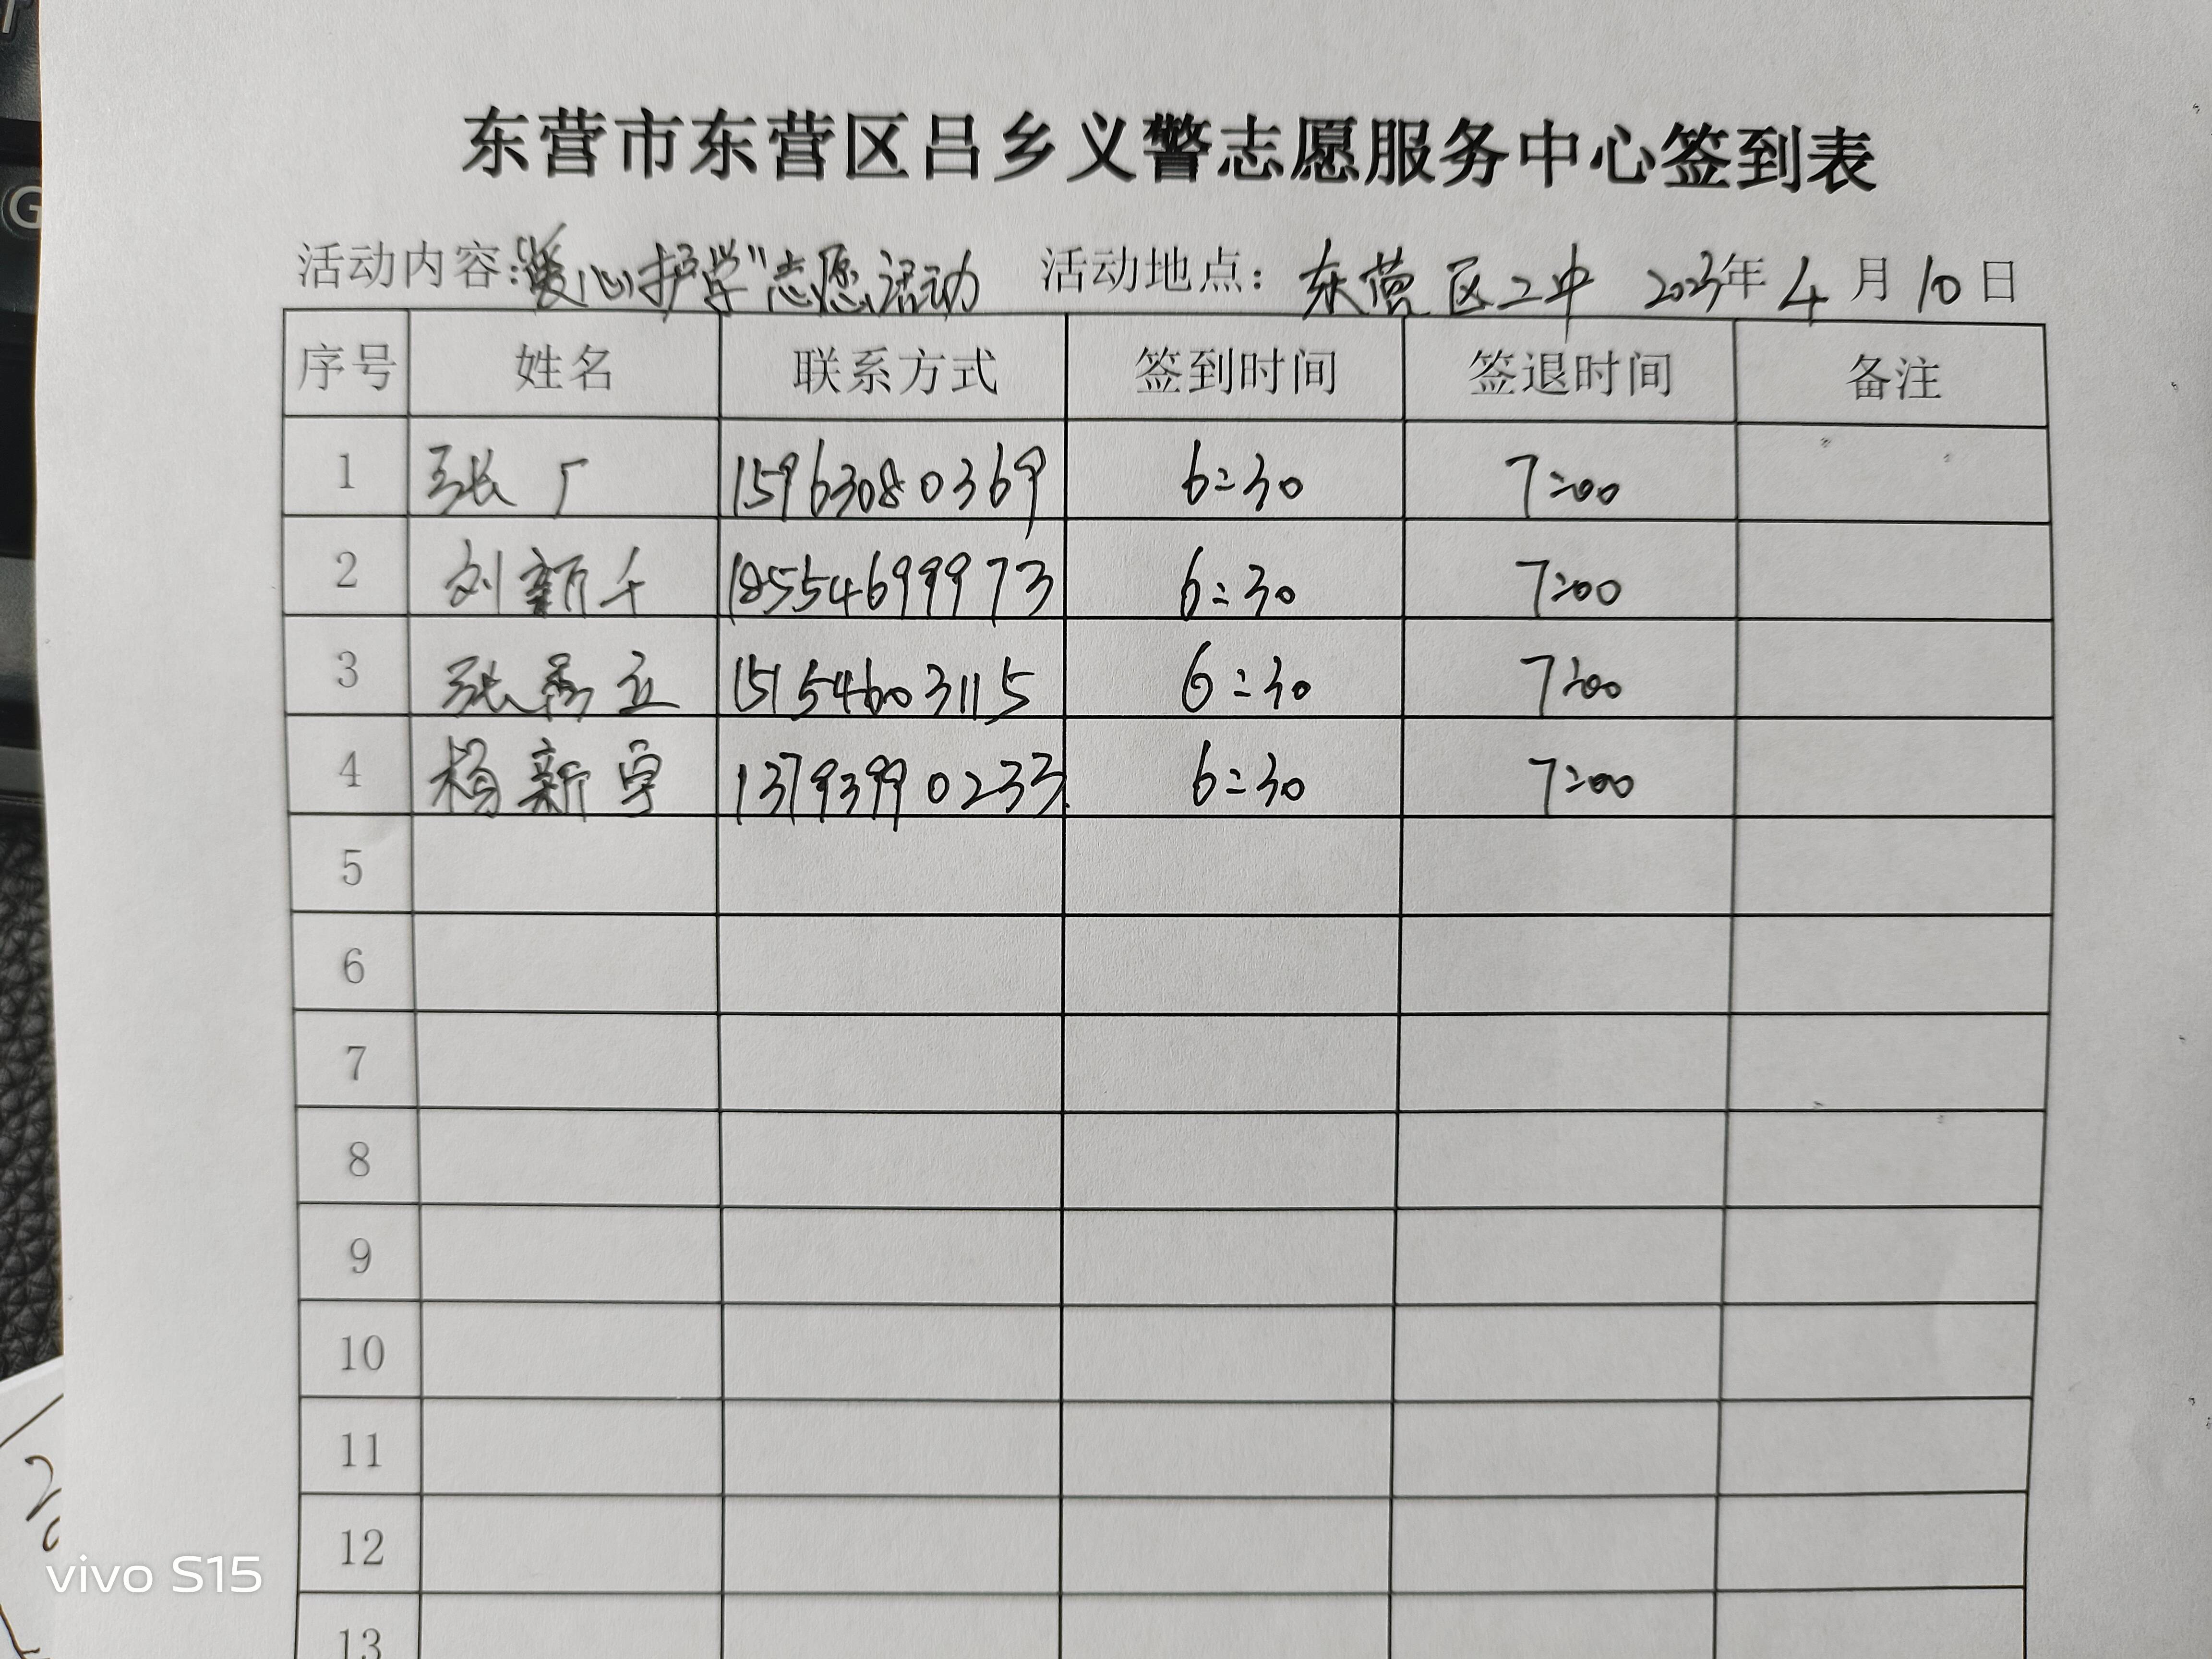 东营市东营区吕乡义警志愿服务中心签到表
活动内容:“爱心护学”志愿活动 活动地点: 东营区二中 2023年4月10日
序号 姓名 联系方式 签到时间 签退时间 备注
1 张广 15963080369 6:30 7:00
2 刘新千 18554699973 6:30 7:00
3 张秀立 15154603115 6:30 7:00
4 杨新宇 13793990233 6:30 7:00
5
6
7
8
9
10
11
12
13
vivo S15